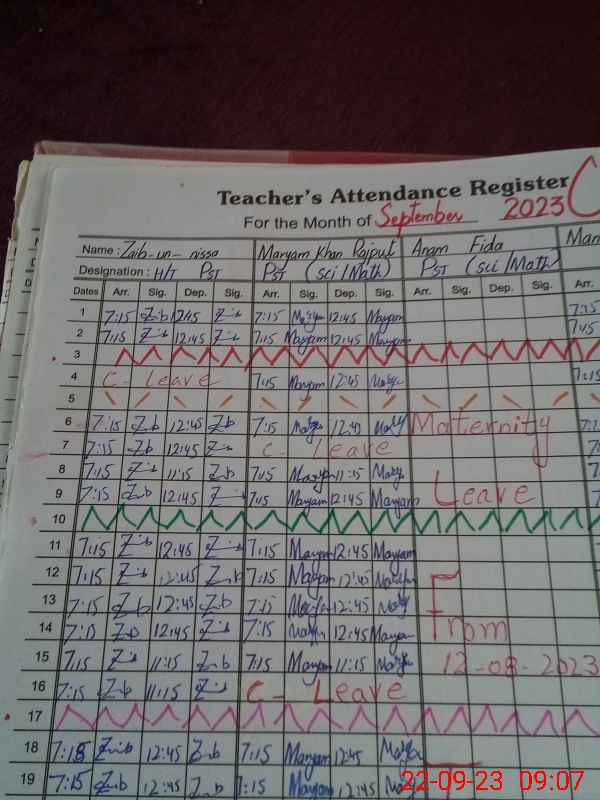 Teacher's Attendance Register
For the Month of September 2023
Name: Zaib-un-nissa Maryam Khan Rajput Anam Fida
Designation: H/T PST PST (sci/Math) PST (sci/Math)
Dates Arr. Sig. Dep. Sig. Arr. Sig. Dep. Sig. Arr. Sig. Dep. Sig. Arr.
1 7:15 Zib 12:45 7:15 Maryam 12:45 Maryam 7:15
2 7:15 12:45 7:15 Maryam 12:45 Maryam 7:45
3
4 C- Leave 7:15 Maryam 12:45 7:15
5
6 7:15 Zib 12:45 Zib 7:15 12:45 Maternity
7 7:15 Zib 12:45 C- Leave
8 7:15 11:15 Zib 7:15 Maryam 11:15
9 7:15 Zib 12:45 7:15 Maryam 12:45 Maryam Leave
10
11 7:15 12:45 7:15 Maryam 12:45 Maryam
12 7:15 12:45 Zib 7:15 Maryam 12:45
13 7:15 Zib 12:45 Zib 7:15 Maryam 12:45
14 7:15 Zib 12:45 7:15 12:45 Maryam From
15 7:15 11:15 Zib 7:15 Maryam 11:15 12-08-2023
16 7:15 Zib 11:15 C- Leave
17
18 7:15 Zib 12:45 Zib 7:15 Maryam 12:45
19 7:15 Zib 12:45 Zib 7:15 Maryam 12:45
22-09-23 09:07